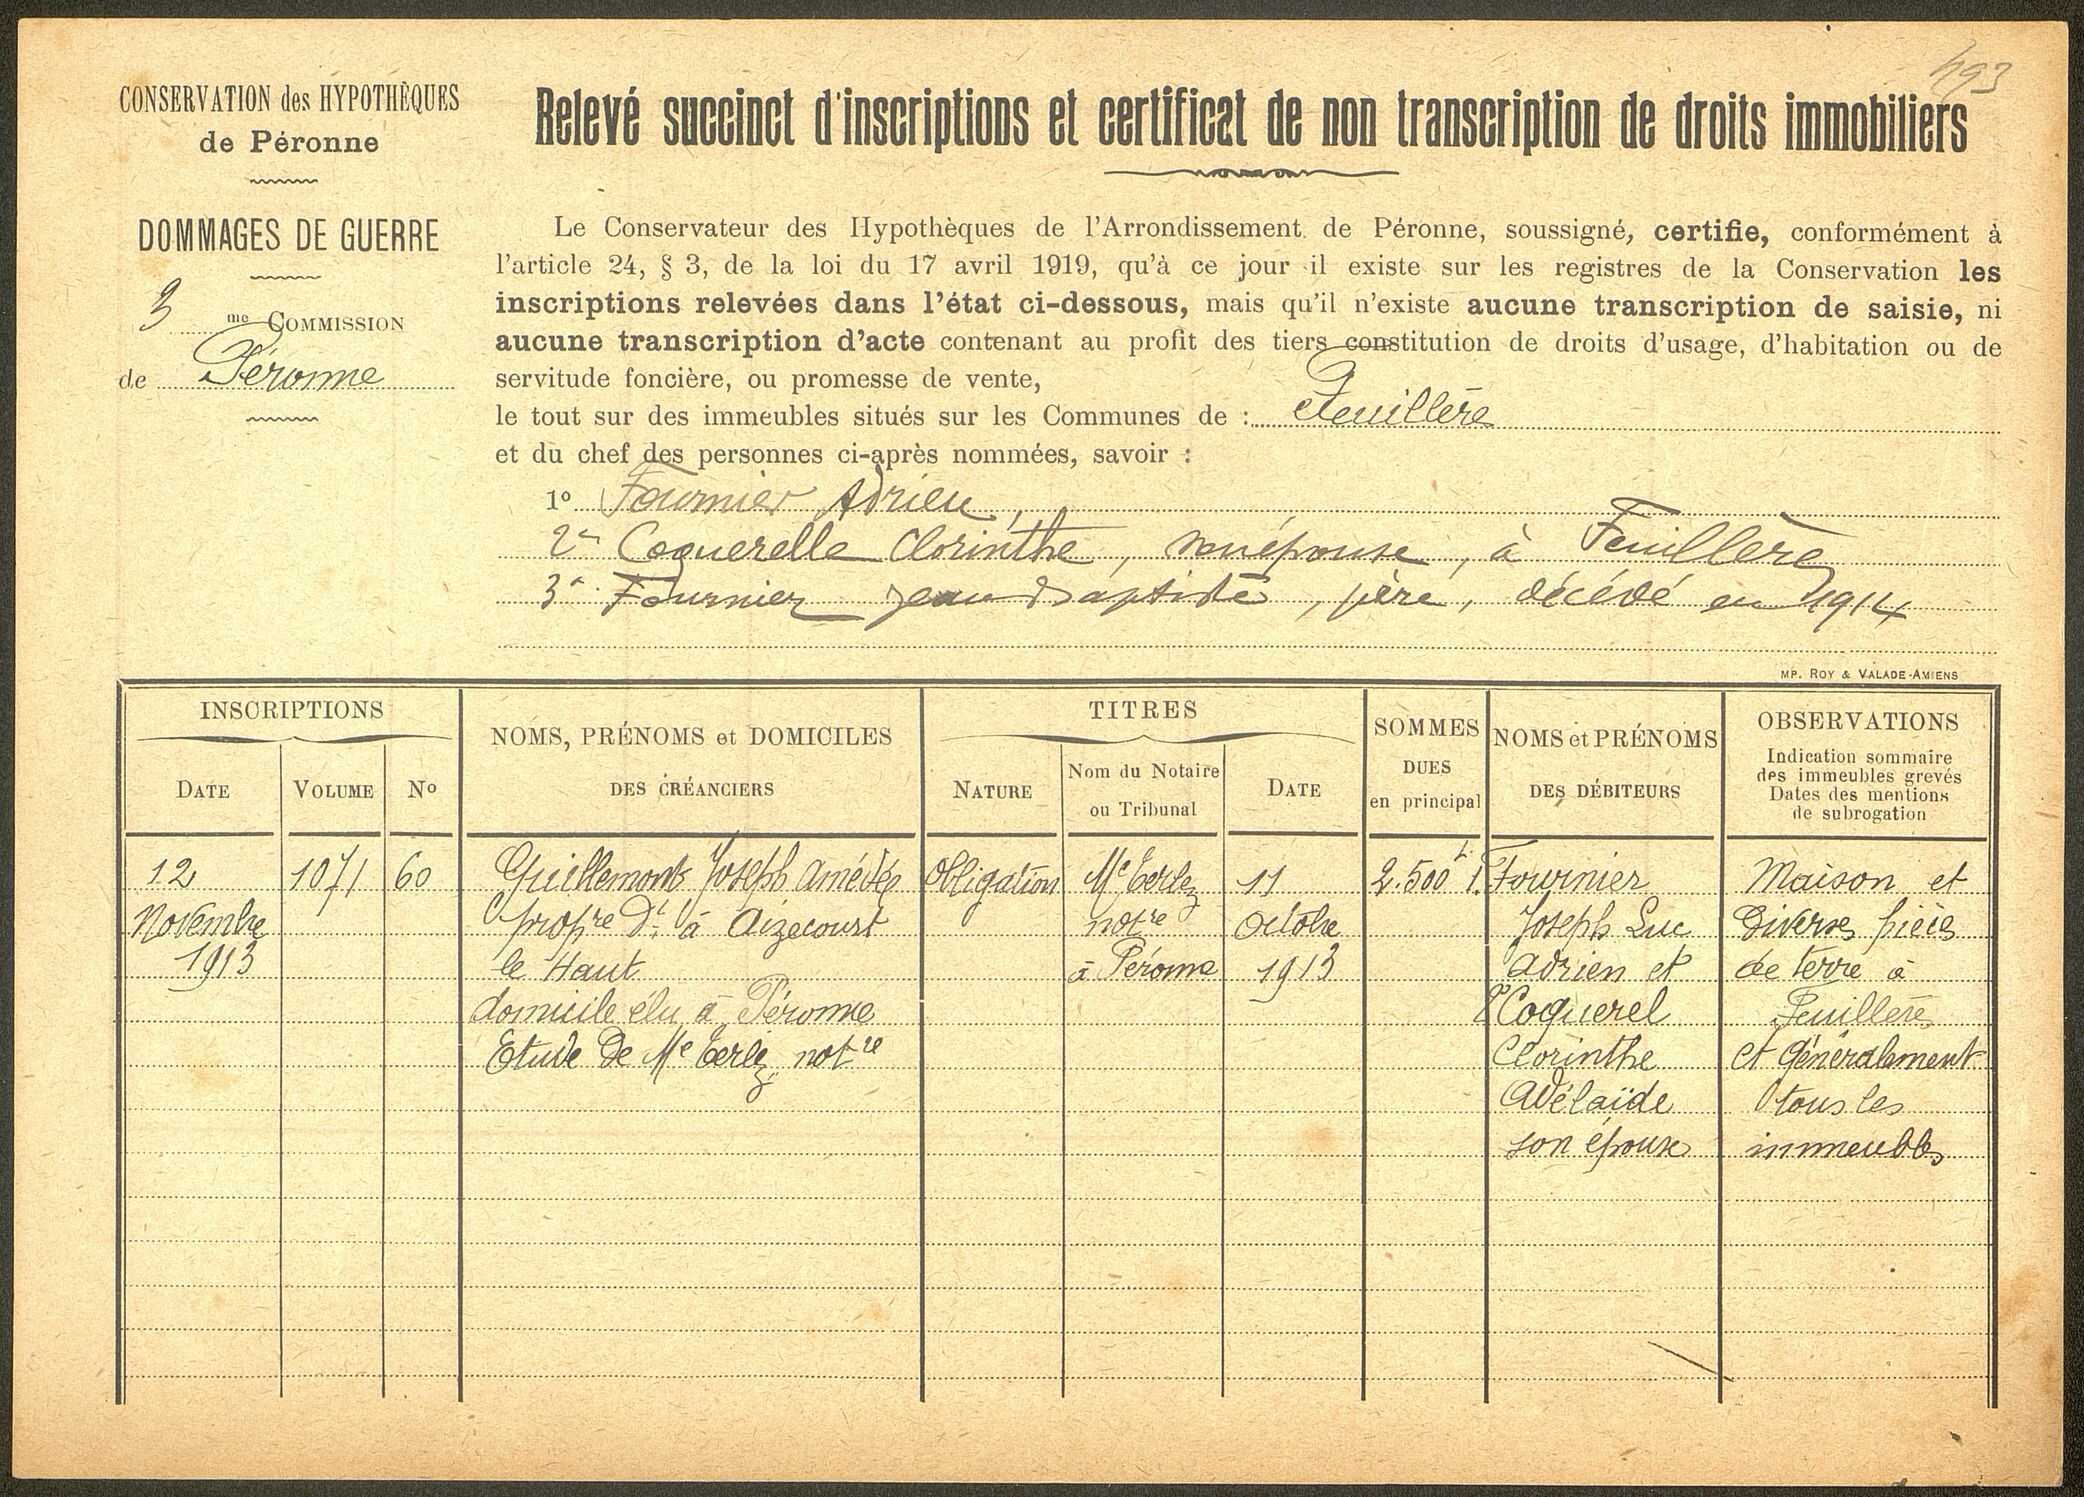 493
CONSERVATION des HYPOTHÈQUES
de Péronne
DOMMAGES DE GUERRE
3 me COMMISSION
de Péronne
Relevé succinct d'inscriptions et certificat de non transcription de droits immobiliers
Le Conservateur des Hypothèques de l'Arrondissement de Péronne, soussigné, certifie, conformément à
l'article 24, § 3, de la loi du 17 avril 1919, qu'à ce jour il existe sur les registres de la Conservation les
inscriptions relevées dans l'état ci-dessous, mais qu'il n'existe aucune transcription de saisie, ni
aucune transcription d'acte contenant au profit des tiers constitution de droits d'usage, d'habitation ou de
servitude foncière, ou promesse de vente,
le tout sur des immeubles situés sur les Communes de : Feuillère
et du chef des personnes ci-après nommées, savoir :
1o Fournier Adrien,
2° Coquerelle Clorinthe, son épouse, à Feuillère
3° Fournier Jean Baptiste, père, décédé en 1914
MP. ROY & VALADE-AMIENS
INSCRIPTIONS
DATE
VOLUME
No
NOMS, PRÉNOMS et DOMICILES
DES CRÉANCIERS
TITRES
NATURE
Nom du Notaire
ou Tribunal
DATE
SOMMES
DUES
en principal
NOMS et PRÉNOMS
DES DÉBITEURS
OBSERVATIONS
Indication sommaire
des immeubles grevés
Dates des mentions
de subrogation
12
Novembre
1913
1071
60
Guillemont Joseph Amédée
propre dt à Aizecourt
le Haut
domicile élu à Péronne
Etude de Me Terlez notre
Obligation
Me Terlez
notre
à Péronne
11
Octobre
1913
2.500
1. Fournier
Joseph Luc
Adrien et
2° Coquerel
Clorinthe
Adélaïde
son épouse
Maison et
diverses pièces
de terre à
Feuillères
et généralement
tous les
immeubles